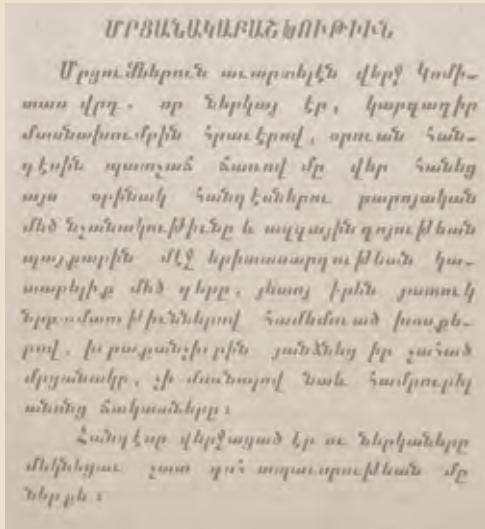 ՄՐՑԱՆԱԿԱԲԱՇԽՈՒԹԻՒՆ
Մրցումներուն աւարտելէն վերջ Կոմի-
տաս վրդ. որ ներկայ էր, կարգադիր
մասնախումբին հրաւէրով, օրուան հան-
դէսին պատշաճ ճառով մը վեր հանեց
այս օրինակ հանդէսներու բարոյական
մեծ նշանակութիւնը և ազգային գոյութեան
պայքարին մէջ երիտասարդութեան կա-
տարելիք մեծ դերը, յետոյ իրեն յատուկ
նրբամտութիւններով համեմուած խօսքե-
րով, իւրաքանչիւրին յանձնեց իր շահած
մրցանակը, չի մոռնալով նաև համբուրել
անոնց ճակատները։
Հանդէսը վերջացած էր ու ներկաները
մեկնեցան շատ տպաւորութեան մը
ներքեւ։